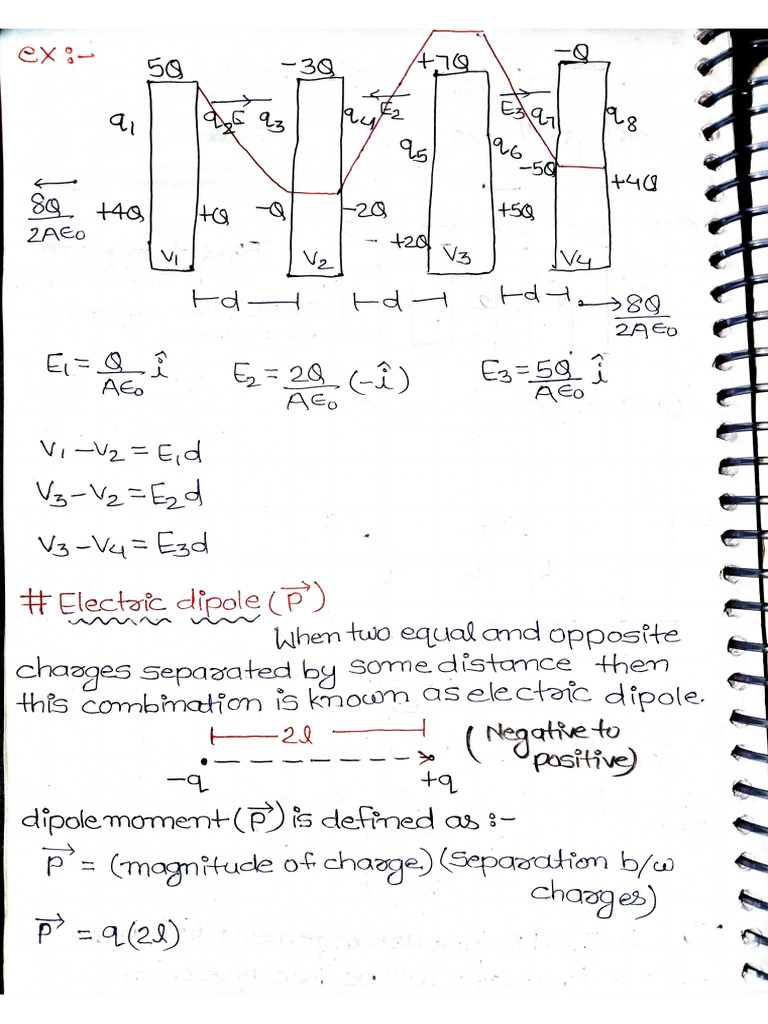 ex:-
5Q -3Q +7Q -Q
q1 q2 E q3 q4 E2 q5 q6 E3 q7 q8
8Q/2Aε0 +4Q +Q -Q -2Q +2Q +5Q -5Q +4Q
V1 V2 V3 V4
d d d 8Q/2Aε0
E1 = Q/Aε0 î E2 = 2Q/Aε0 (-î) E3 = 5Q/Aε0 î
V1-V2 = E1d
V3-V2 = E2d
V3-V4 = E3d
# Electric dipole (P⃗)
When two equal and opposite
charges separated by some distance then
this combination is known as electric dipole.
2l (Negative to
-q +q positive)
dipole moment (P⃗) is defined as :-
P⃗ = (magnitude of charge) (Separation b/w
charges)
P⃗ = q(2l)